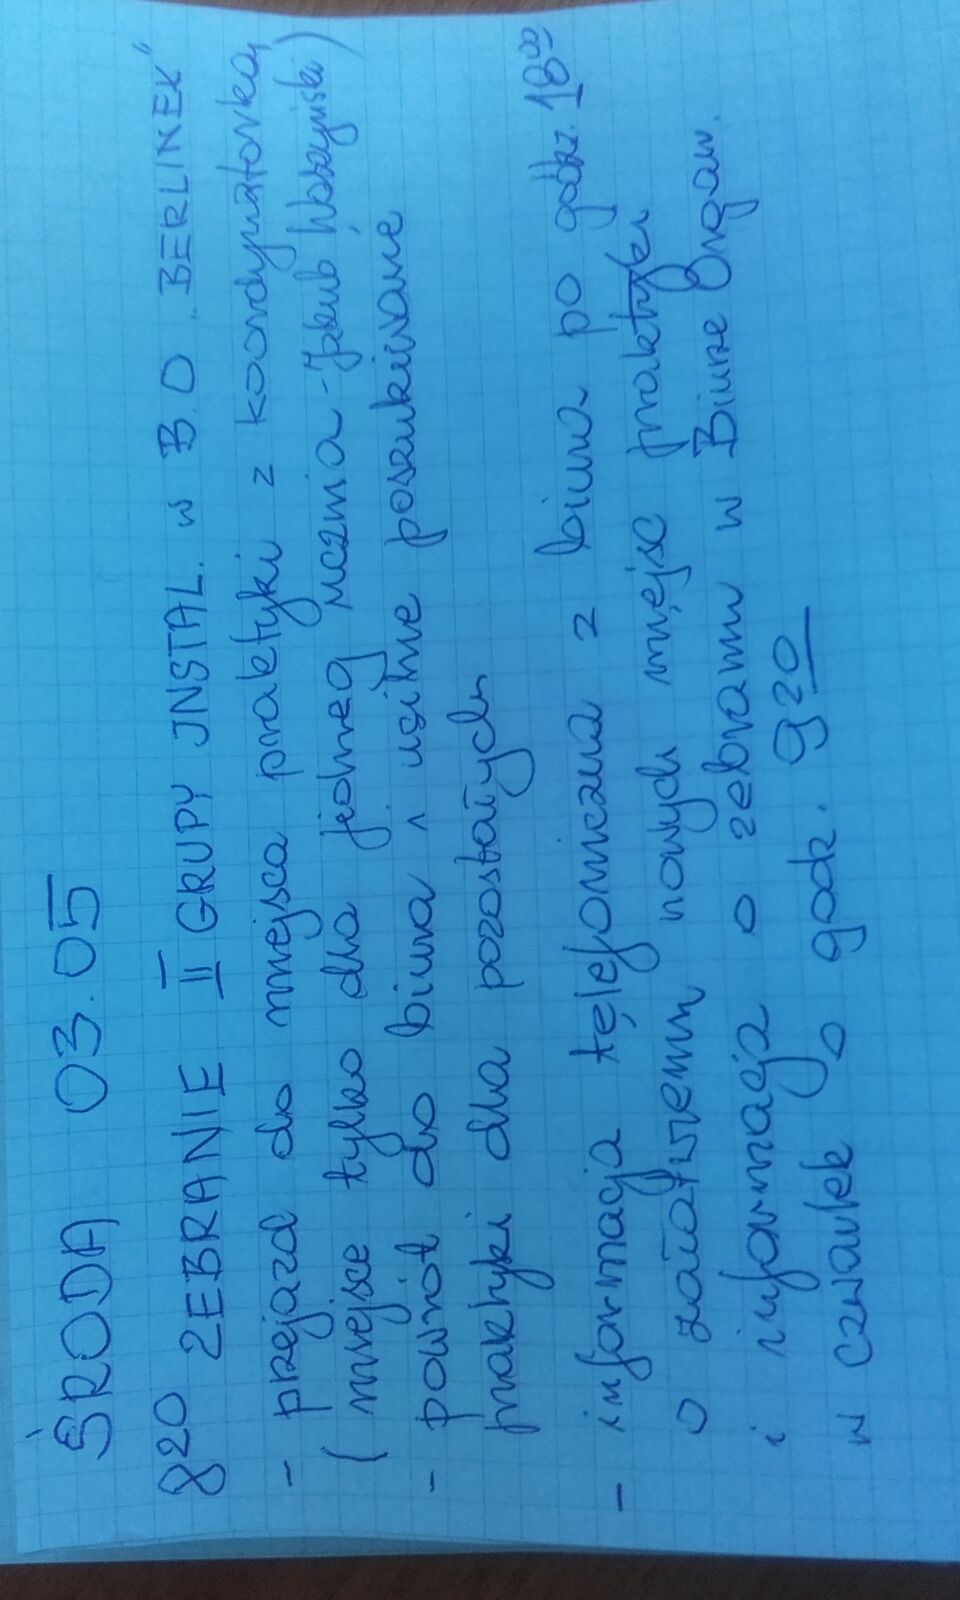 ŚRODA 03.05
8²⁰ ZEBRANIE II GRUPY INSTAL. w B.O. „BERLINEK"
- przejazd do miejsca praktyki z koordynatorką
( miejsce tylko dla jedneg ucznia - Jakub )
- powrót do biura i usilne poszukiwanie
praktyki dla pozostałych
- informacja telefoniczna z biura po godz. 18⁰⁰
o załatwieniu nowych miejsc praktyki
i informacja o zebraniu w Biurze Organ.
w czwartek o godz. 9²⁰